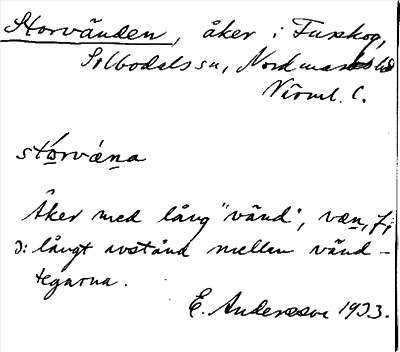 Storvänden, åker i Fuxkog,
Silbodals sn, Nordmarks hd
Värml. l.
stọrvæ̀ṇa
Åker med lång "vänd", væṇ, f;
ɔ: långt avstånd mellan vänd-
tegarna.
E. Andersson 1933.